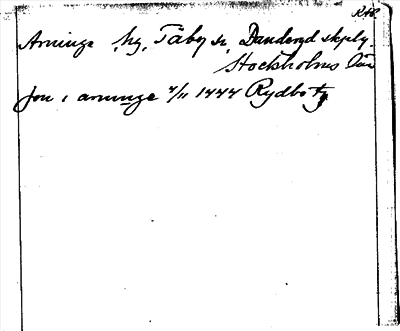 RAP.
Arninge, hg, Täby sn, Danderyd skplg.
Stockholms län
Jon i aruninge 4/11 1444 Rydbo